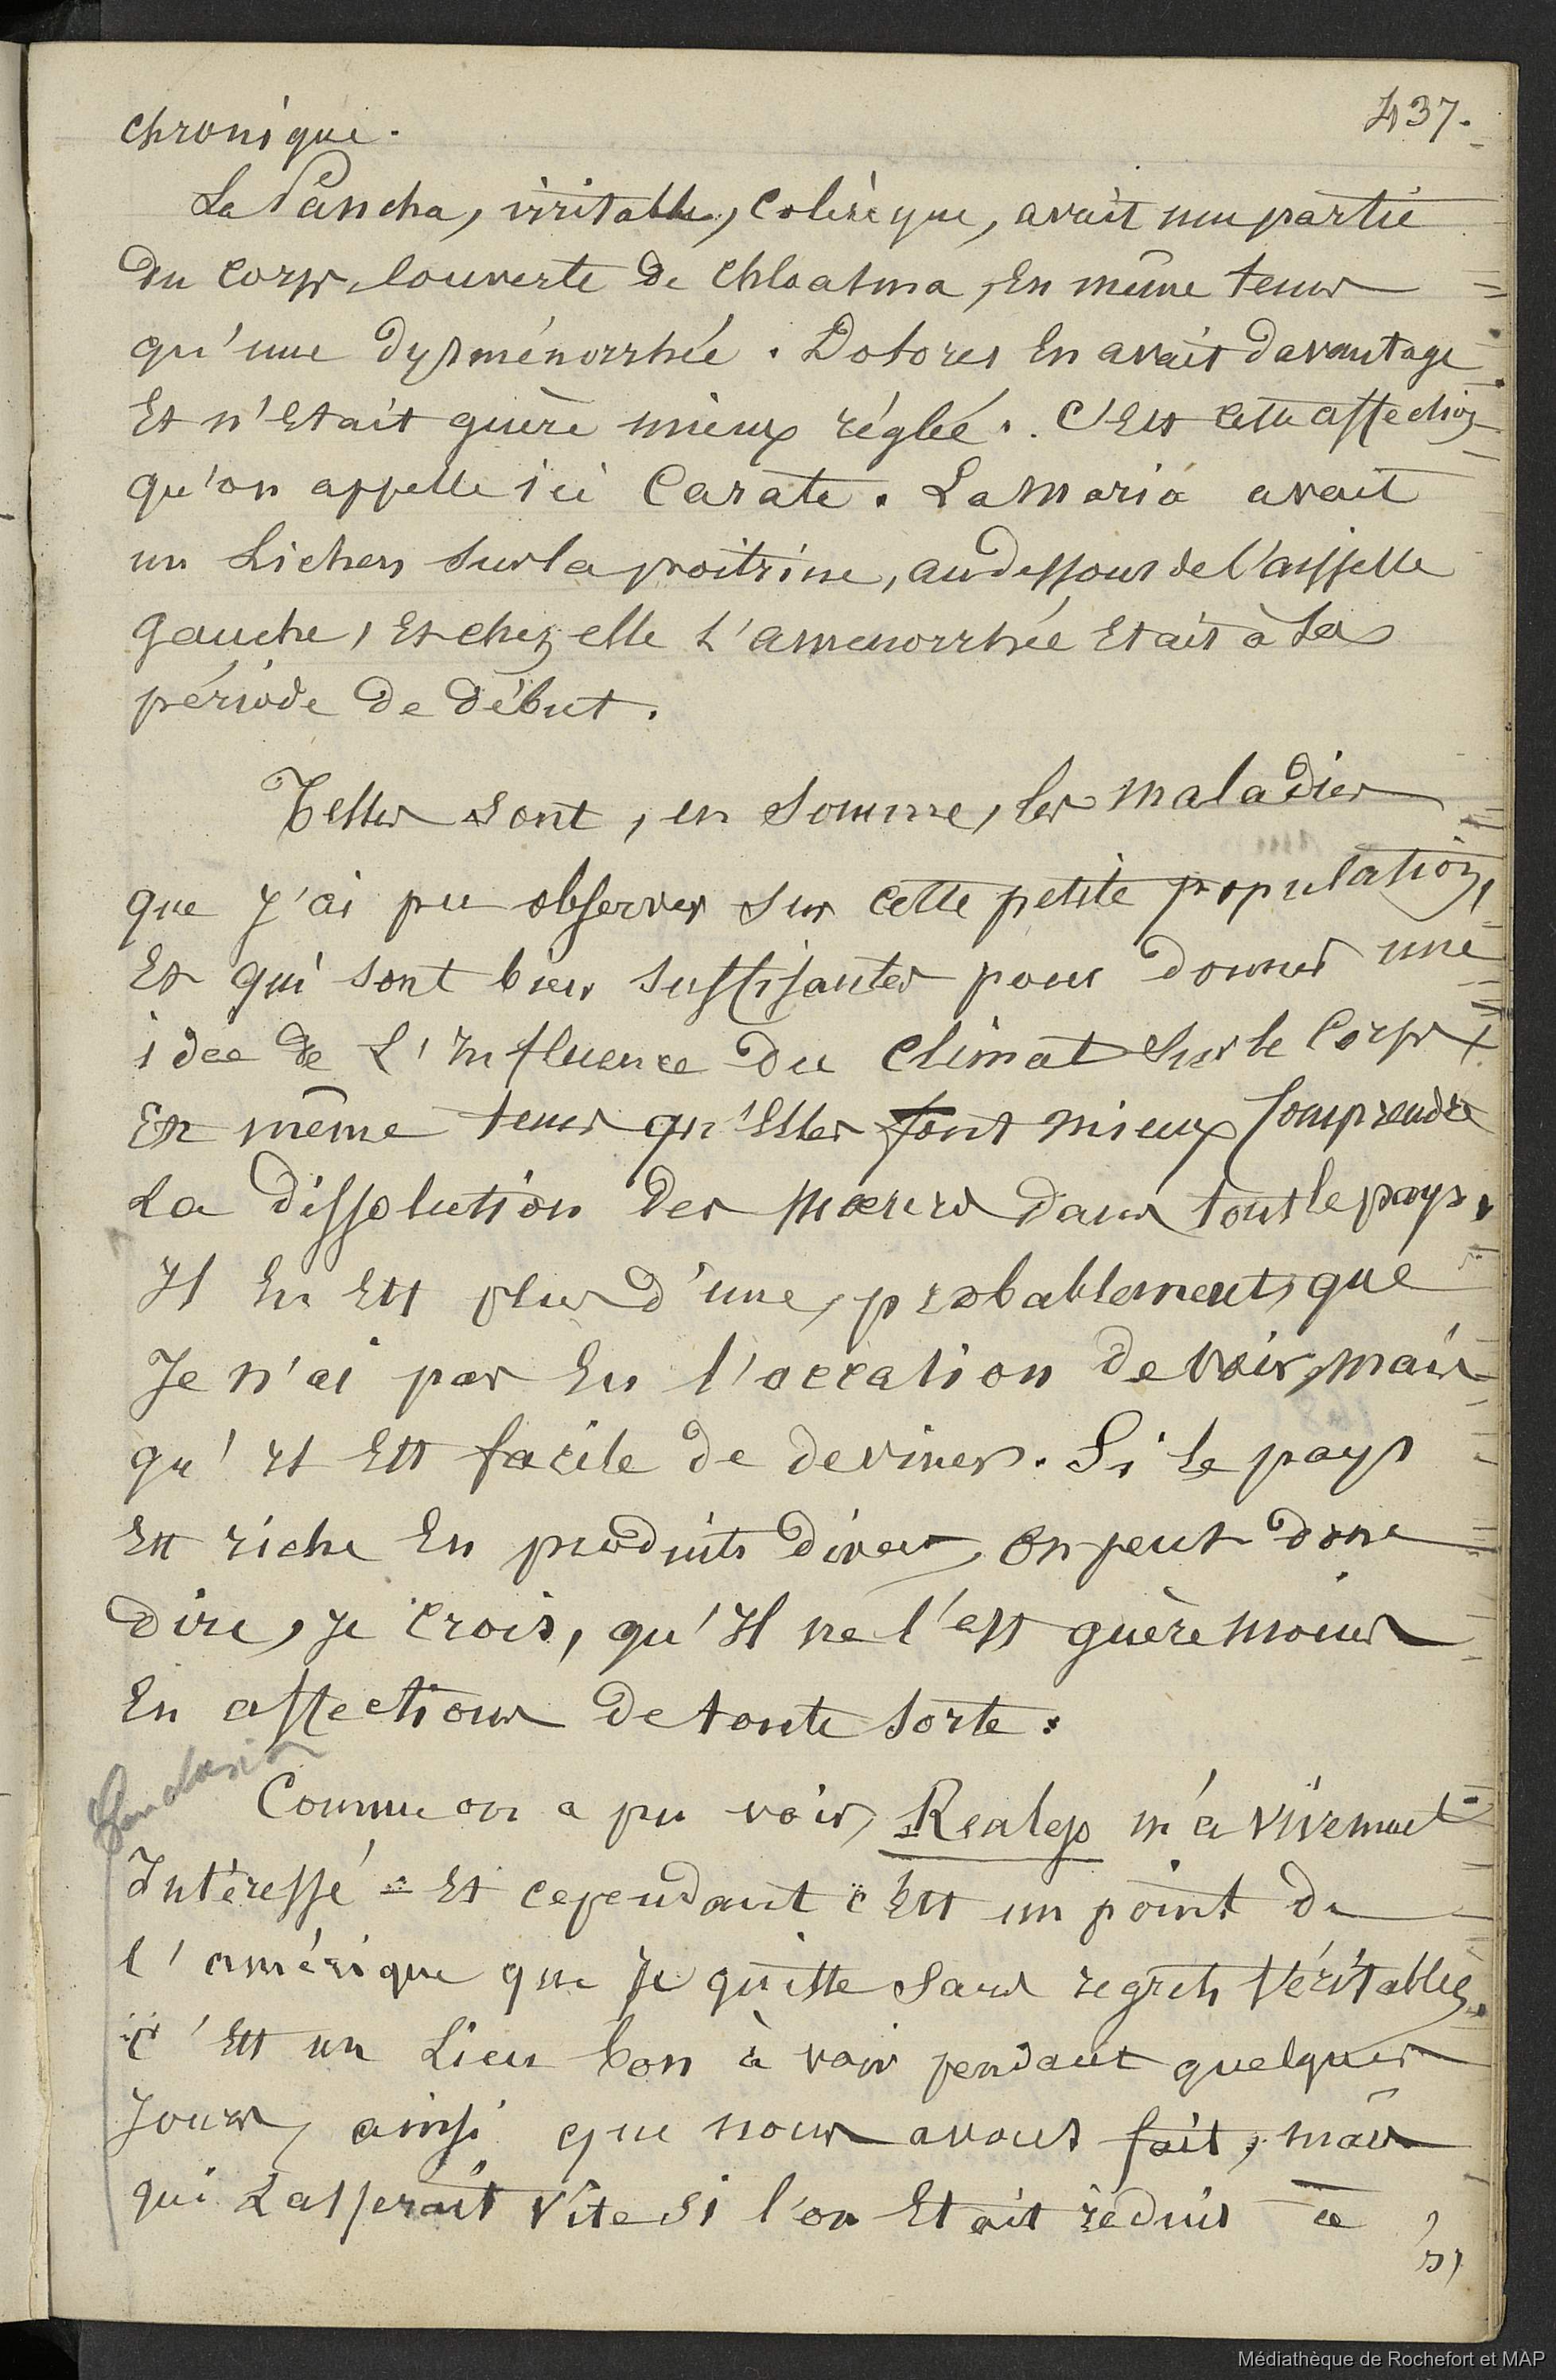 437.
chronique.
La Pancha, irritable, colérique, avait une partie
du corps, couverte de chloasma, en même tems
qu'une dysménorrhée. Dolores en avait davantage
Et n'etait guère mieux réglée. C'est cette affection
qu'on appelle ici Carate. La Maria avait
un Lichen sur la poitrine, au dessous de l'aisselle
gauche, et chez elle l'amenorrhée etait à la
période de début.
Telles sont, en somme, les maladies
que j'ai pu observer sur cette petite population,
Et qui sont bien suffisantes pour donner une
idee de l'influence du climat sur le corps
En même tems qu'elles font mieux comprendre
la dissolution des mœurs dans tout le pays.
Il en est plus d'une, probablement, que
Je n'ai pas eu l'occasion de voir, mais
qu'il est facile de deviner. Si le pays
est riche en produits divers, on peut donc
dire, je crois, qu'il ne l'est guère moins
En affections de toute sorte.
Conclusion
Comme on a pu voir, Realejo m'a vivement
Intéressé - et cependant c'est un point de
l'amérique que je quitte sans regrets véritables.
c'est un Lieu bon à voir pendant quelques
Jours, ainsi que nous avons fait, mais
qui lasserait vite si l'on etait réduit à
s'y
Médiathèque de Rochefort et MAP